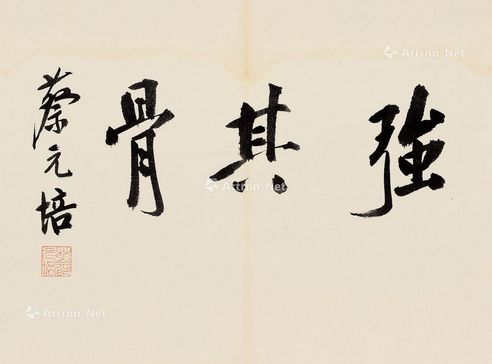 強其骨
蔡元培
Artron.Net
Artron.Net
Artron.Net